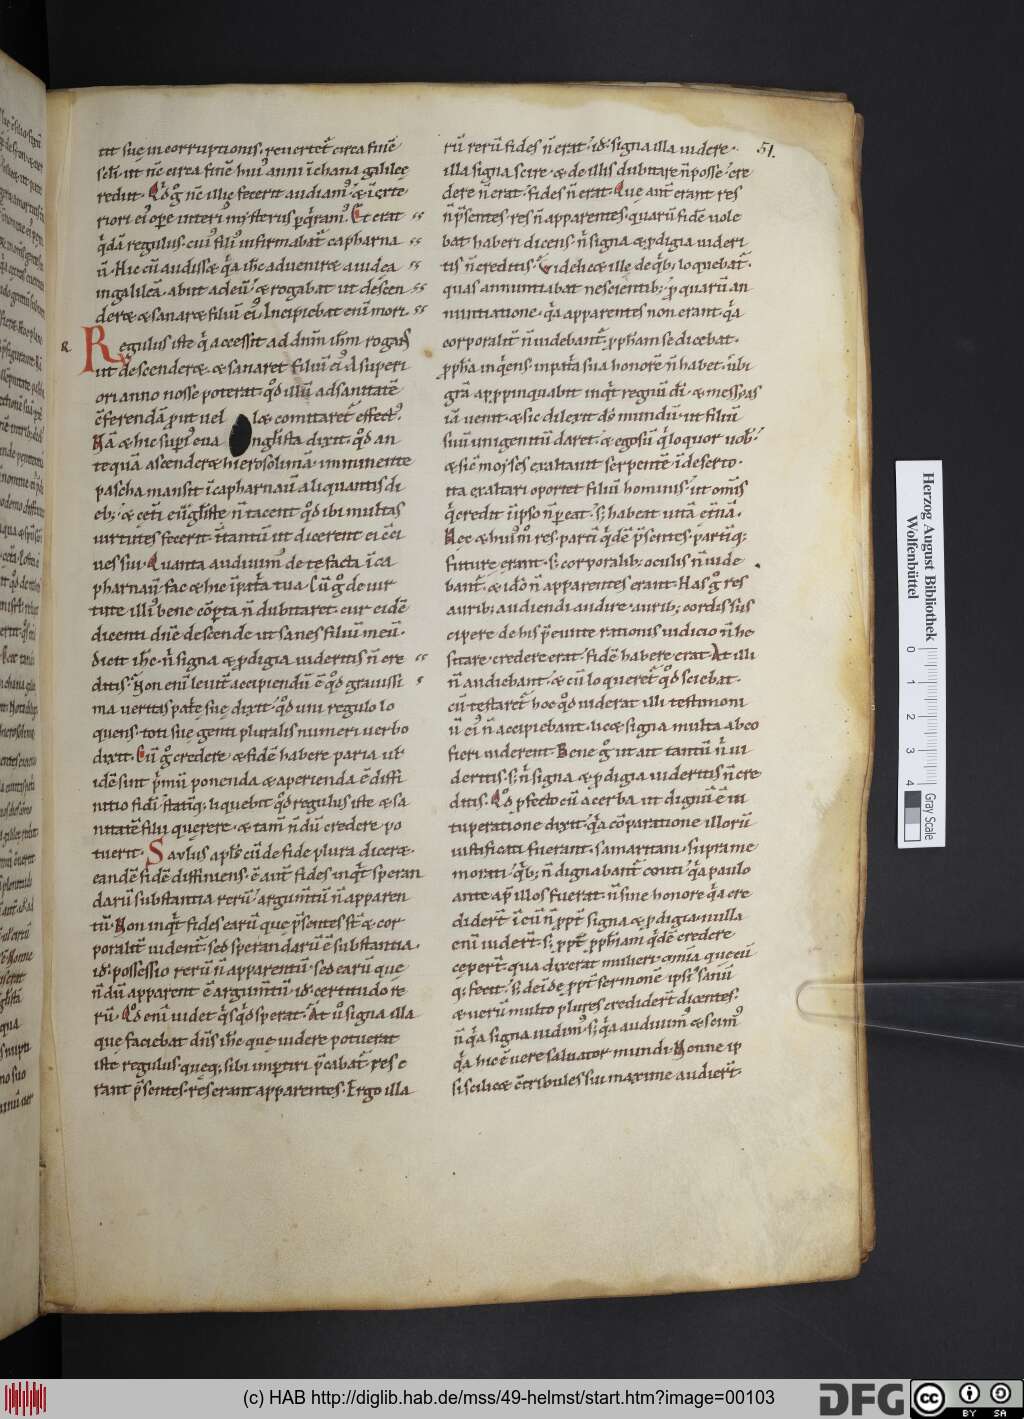 51.
tit suę in corruptionis. reuertet᷑ circa finē
sc̄li. ut nc̄ circa finē hui᷒ anni ī chana galileę
rediit. Qd̓ gͦ nc̄ illic fecerit audiam᷒. & ī exte
riori ei᷒ ope interi᷒ mysterius pq̄ram᷒. Et erat
qͥdā regulus. cui᷒ fili᷒ infirmabat᷑ capharna
ū. Hic cū audiss& qͣa ih̄c aduenir& a iudea
in galileā. abiit ad eū. & rogabat ut descen
der& & sanar& filiū ei᷒. Incipiebat enī mori.
Regulus iste qͥ accessit ad dn̄m ih̄m rogans
ut descender& & sanaret filiū ei᷒. A superi
ori anno nosse poterat. qd̓ illū ad sanitatē
c̄ferendā put uel læ comitaret᷑ effect᷒.
Nā & hic supi᷒ eua nglista dixit. qd̓ an
tequā ascender& hierosolimā. imminente
pascha mansit ī capharnaū aliquantis di
eb;. & cet̄i eūgliste n̄ tacent qd̓ ibi multas
uirtutes fecerit. ītantū ut dicerent ei c̄ci
ues sui. Quanta audiuim᷒ de te facta ī ca
pharnaū. fac & hic ī patͥa tua. Cū gͦ de uir
tute illi᷒ bene cōpta n̄ dubitaret. cur eidē
dicenti dn̄e descende ut sanes filiū meū.
dicit ih̄c. nͥ signa & pdigia uideritis n̄ cre
ditis. Non enī leuit᷑ accipiendū ē qd̓ grauissi
ma ueritas patͥe suę dixit. qd̓ uni regulo lo
quens. toti sue genti pluralis numeri uerbo
dixit. Cū gͦ credere & fidē habere paria ul᷑
idē sint. pͥmū ponenda & aperienda ē diffi
nitio fidei. statīq; liquebit qd̓ regulus iste & sa
nitatē filii querere. & tam̄ n̄dū credere po
tuerit. Saulus aplͥs cū de fide plura dicer&.
eandē fidē diffiniens. ē aut̄ fides inqͥt speran
darū substantia rerū. argumtū n̄ apparen
tū. Non inqͥt fides earū que pͬsentes st̄ & cor
poralit᷑ uident᷑. sed sperandarū ē substantia.
id̓. possessio rerū n̄ apparentiū. sed earū que
n̄dū apparent ē argumtū. id̓. certitudo re
rū. Qd̓ enī uidet qͥs qd̓ sperat. At u̓ signa illa
que faciebat dn̄s ih̄c que uidere potuerat
iste regulus. queq; sibi impertiri pͬcabat᷑ res e
rant pͬsentes. res erant apparentes. Ergo illa
rū rerū fides n̄ erat. id̓. signa illa uidere.
illa signa scire. & de illis dubitare n̄ posse. cre
dere n̄ erat. fides n̄ erat. Que aut̄ erant res
n̄ pͬsentes. res n̄ apparentes. quarū fidē uole
bat haberi dicens. nͥ signa & pdigia uideri
tis n̄ creditis. Videlic& ille de qͥb; loquebat᷑.
quas annuntiabat nescientib;. p quarū an
nuntiatione. qͣa apparentes non erant. qͣa
corporalit᷑ n̄ uidebant᷑. pphām se dicebat.
pphā inqͥens. in patͥa sua honorē n̄ habet. ubi
grā. appinquabit inqͥt regnū dī. & messyas
iā uenit. & sic dilexit ds̄ mundū. ut filiū
suū unigenitū daret. & ego sū qͥ loquor uob᷒.
& sic moyses exaltauit serpentē ī deserto.
ita exaltari oportet filiū hominis. ut omīs
qͥ credit ī ipso n̄ peat. sꝫ habeat uitā etnā.
Hec & hui᷒m̊ res. partī qͥdē pͬsentes. partīq;
future erant. sꝫ corporalib; oculis n̄ uide
bant᷑. & ido̓ n̄ apparentes erant. Has gͦ res
aurib; audiendi audire. aurib; cordis sus
cipere. de his pͬeunte rationis iudicio n̄ he
sitare. credere erat. fidē habere erat. At illi
n̄ audiebant. & cū loqueret᷑ qd̓ sciebat.
cū testaret᷑ hoc qd̓ uiderat. illi testimoni
ū ei᷒ n̄ accipiebant. lic& signa multa ab eo
fieri uiderent. Bene gͦ ut ait tantū nͥ ui
deritis. sꝫ nͥ signa & pdigia uideritis n̄ cre
ditis. Qd̓ pfecto cū acerba ut dignū ē ui
tuperatione dixit. qͣa cōparatione illorū
iustificati fuerant. samaritani. suprame
morati. qͥb; n̄ dignabant᷑ couti. qͣa paulo
ante ap̄ illos fuerat n̄ sine honore. qͣa cre
didert̄ ī eū n̄ ppt᷑ signa & pdigia. nulla
enī uidert̄. sꝫ ppt᷑ pphiam qͥdē credere
cepert̄. qua dixerat mulieri. omīa quecū
q; fecit. sꝫ deīde ppt᷑ sermonē ipsi᷒ sanū
& uerū multo plures credidert̄ dicentes.
n̄ qͣa signa uidim᷒. sꝫ qͣa audiuim᷒ & scim᷒
qͣa hic ē uere saluator mundi. Nonne ip
si scilic& c̄tribules sui maxime audiert̄.
Herzog August Bibliothek
Wolfenbüttel
0 1 2 3 4
Gray Scale
(c) HAB http://diglib.hab.de/mss/49-helmst/start.htm?image=00103
DFG
cc BY SA